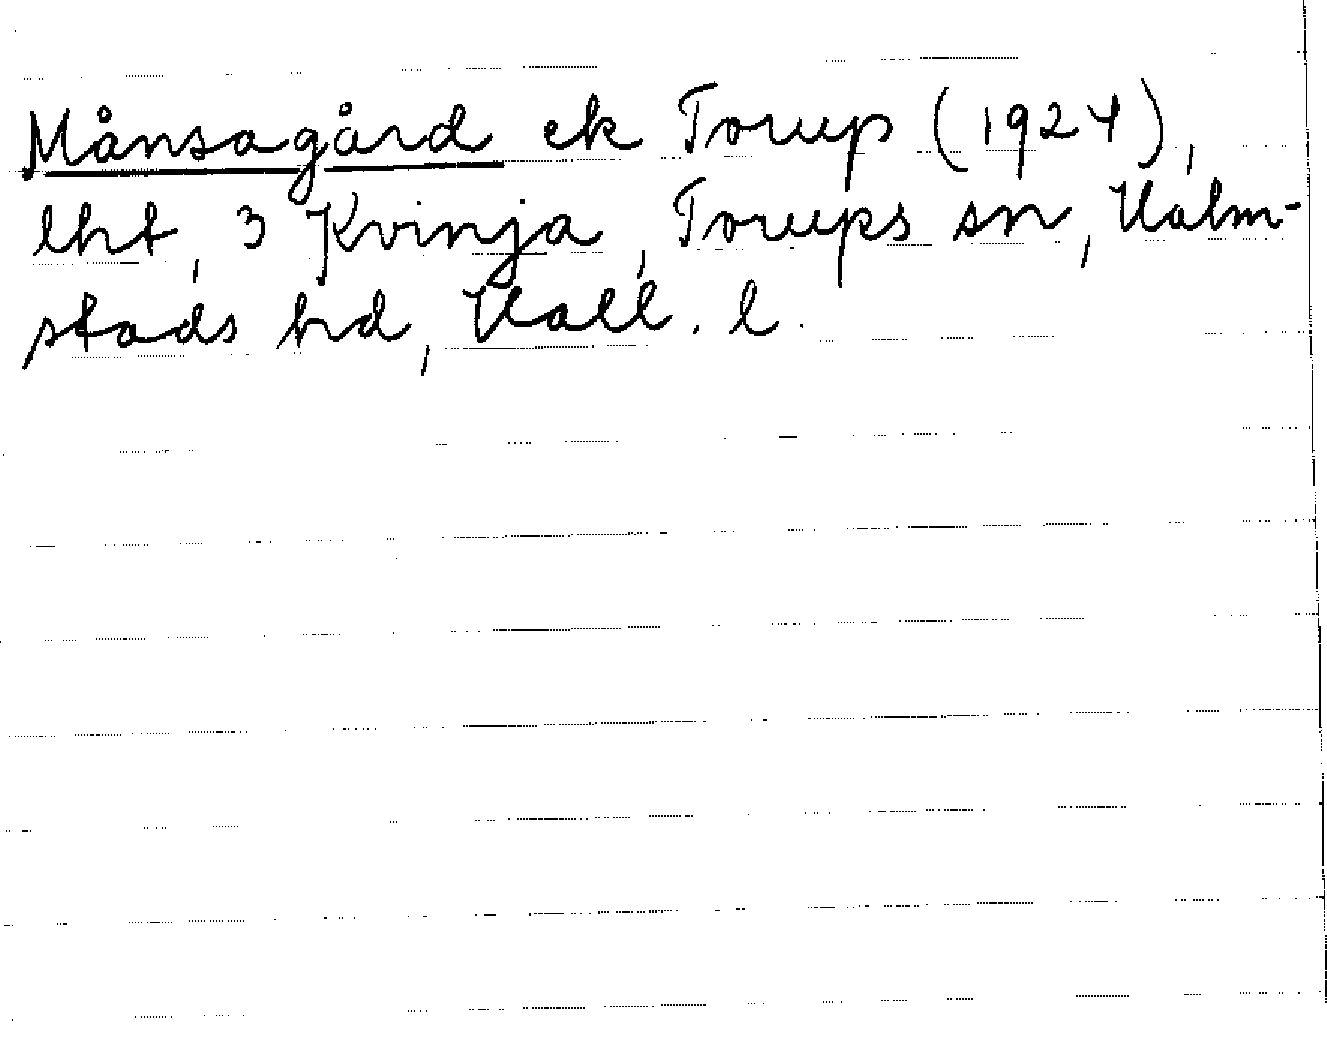 Månsagård ek Torup (1924),
lht, 3 Kvinja, Torups sn, Halm-
stads hd, Hall. l.